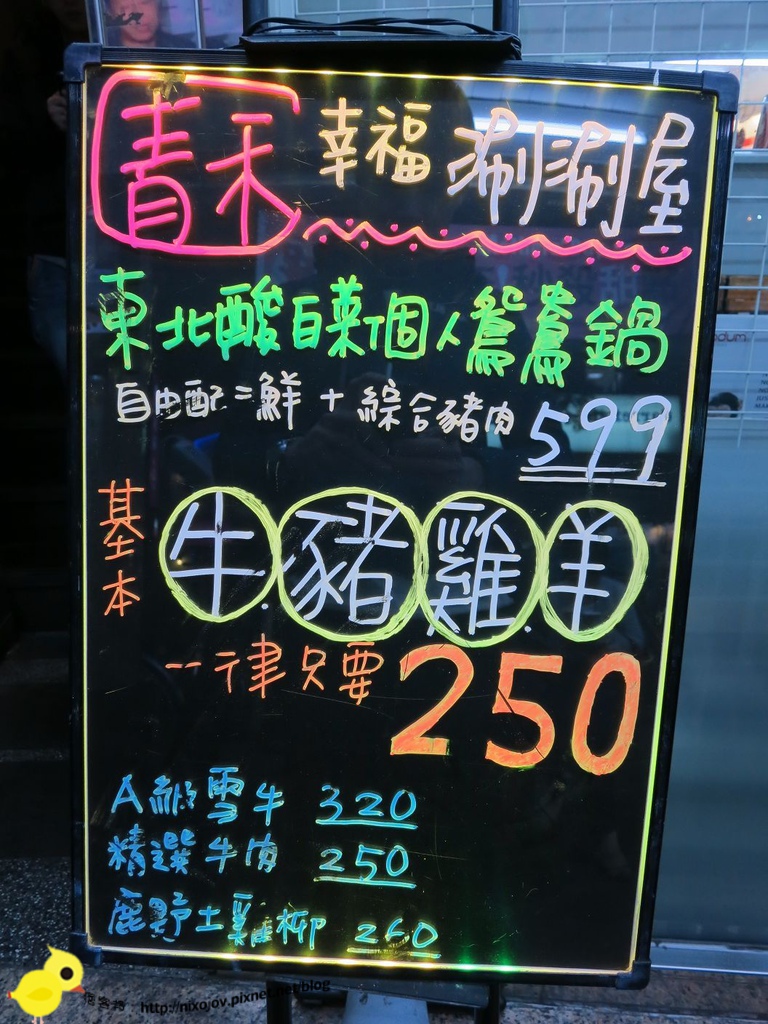 青禾 幸福 涮涮屋
東北酸白菜個人鴛鴦鍋
自由配=鮮+綜合豬肉 599
基本 牛.豬雞.羊
一律只要 250
A級雪牛 320
精選牛肉 250
鹿野土雞柳 260
痞客邦 http://nixojov.pixnet.net/blog